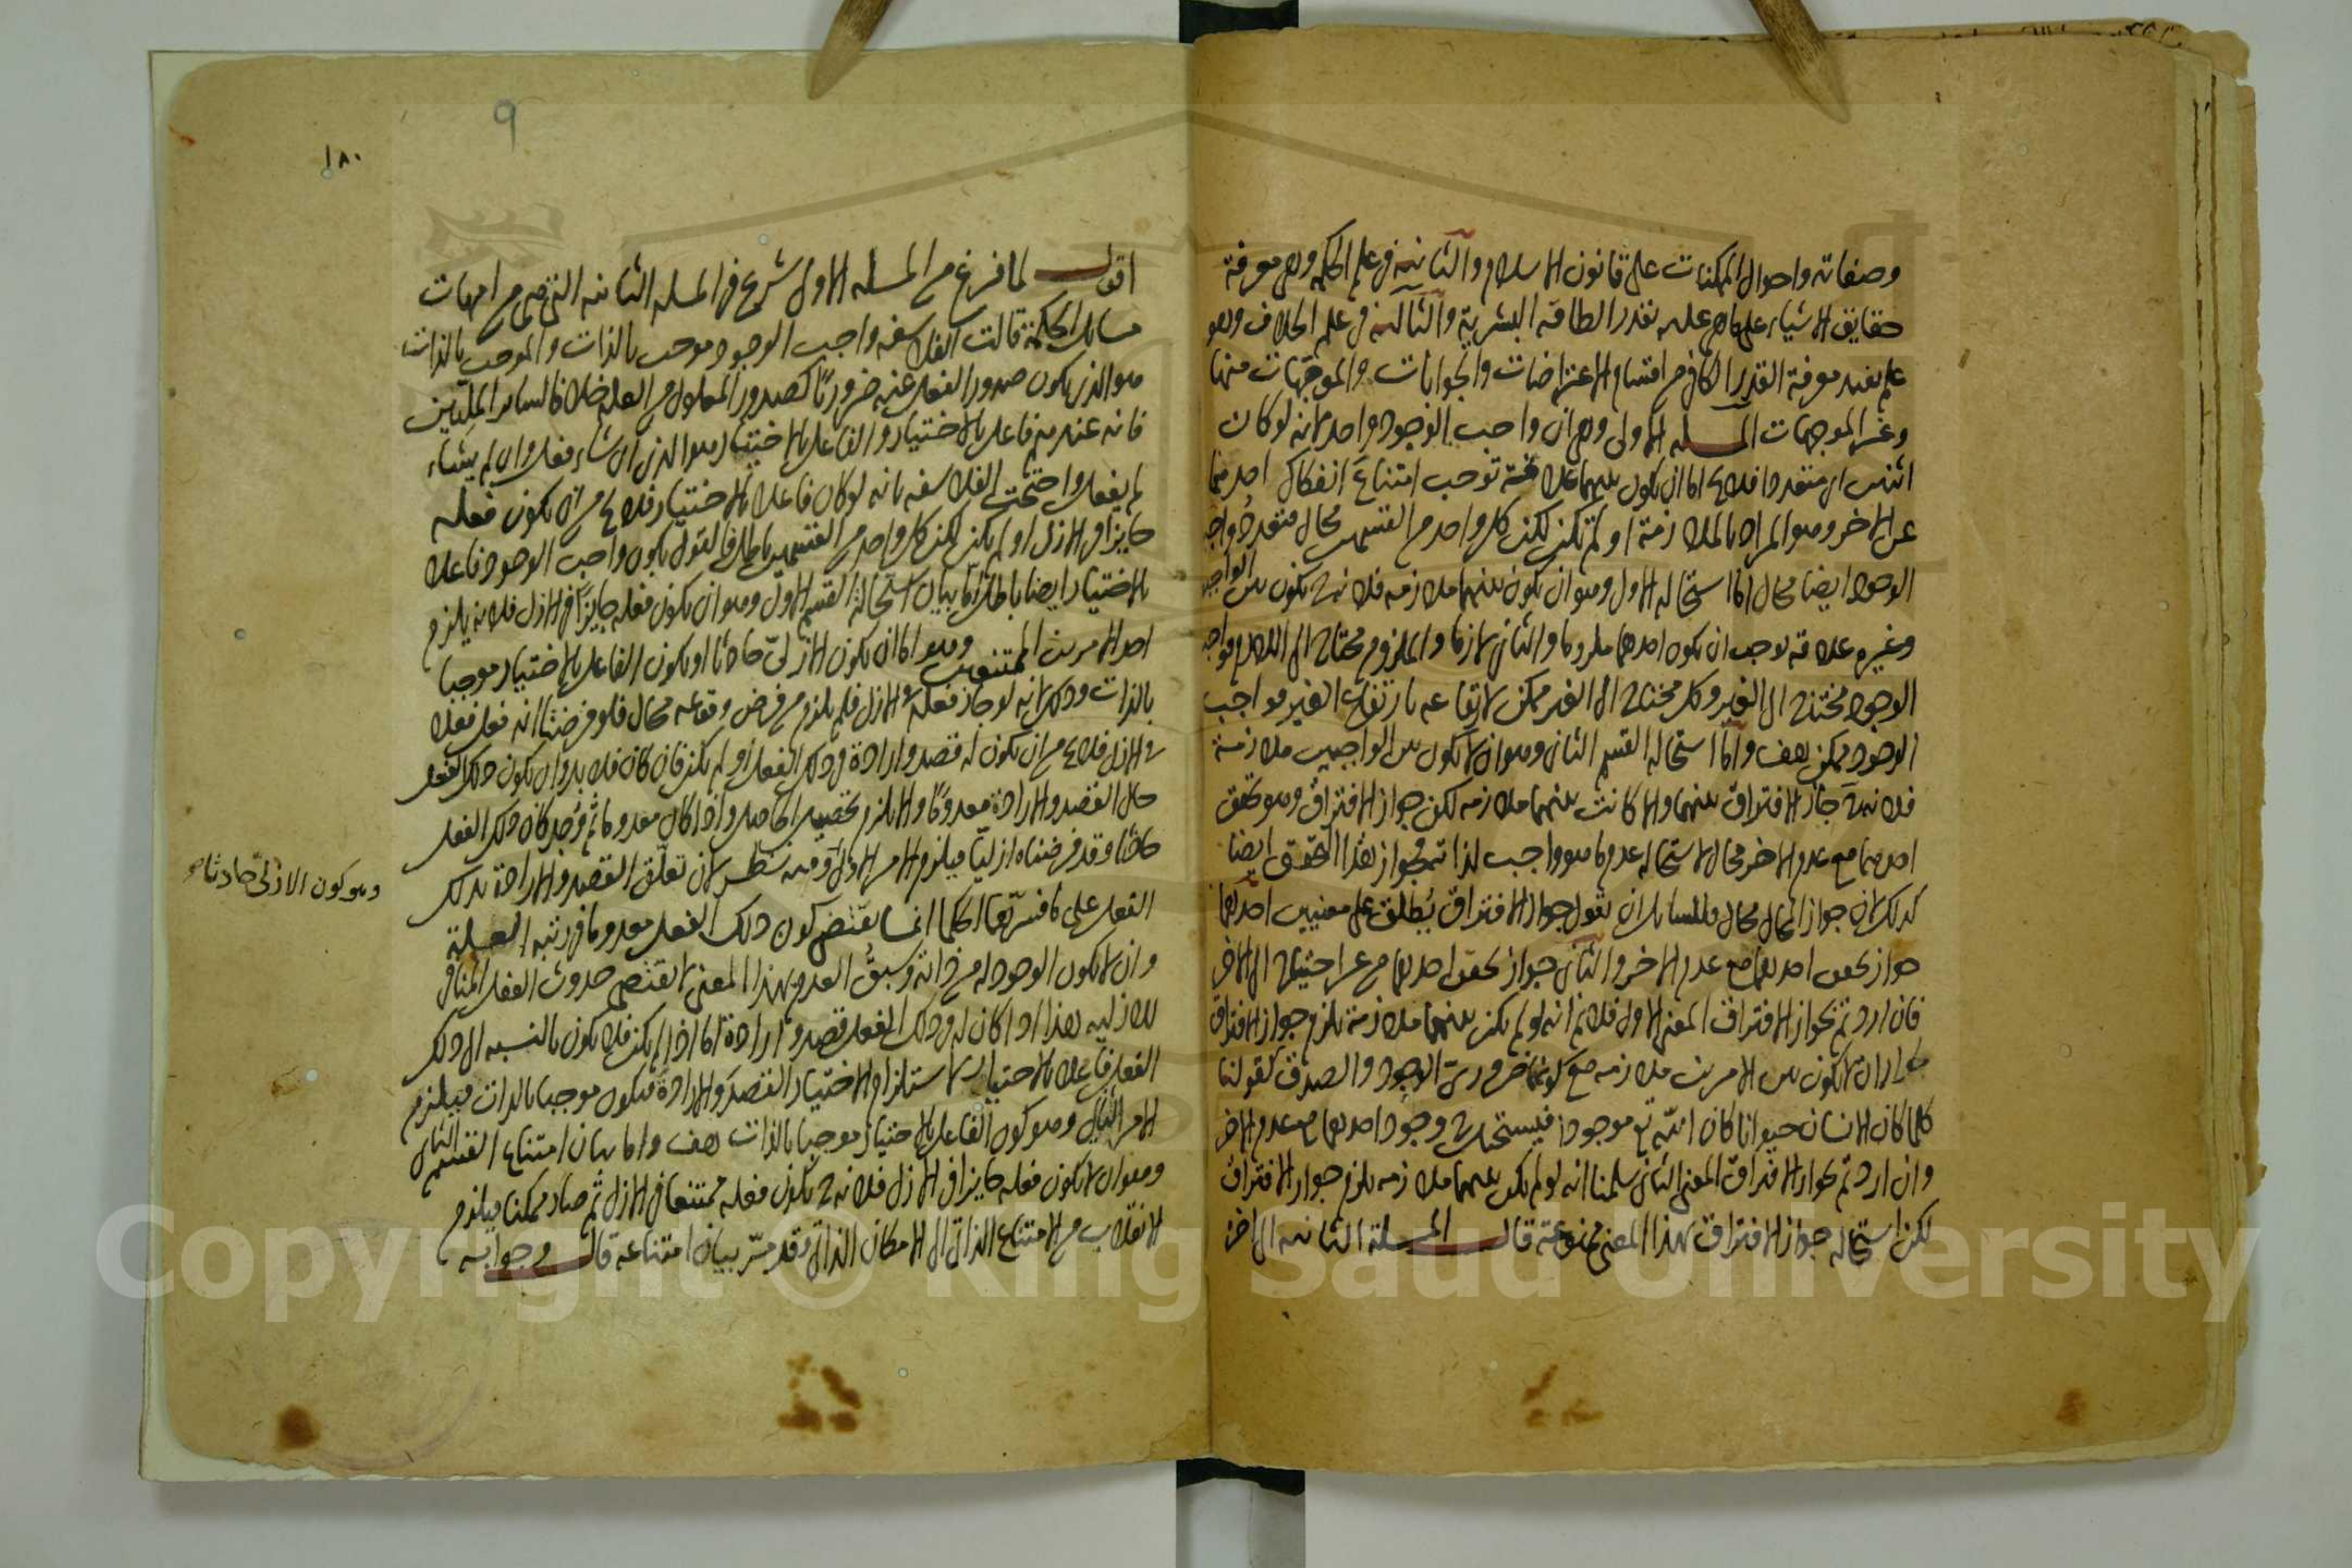 وصفاته واحوال الممكنات على قانون الاسلام والثانية في علم الحكمة وهو معرفة
حقايق الاشياء على ما هي عليه بقدر الطاقة البشرية والثالثة في علم الخلاف وهو
علم يفيد معرفة القدر الكافي من اقسام الاعتراضات والجوابات والموجهات منها
وغير الموجهات المسله الاولى وهي ان واجب الوجود واحد لانه لو كان
اثنين اي متعددا فلا يخ اما ان يكون بينهما علاقة توجب امتناع انفكاك احدهما
عن الاخر وهو المراد بالملازمة او لم تكن لكن كل واحد من القسمين محال فتعدد واجب
الوجود ايضا محال اما استحالة الاول وهو ان يكون بينهما ملازمه فلانه ح يكون بين الواجب
وغيره علاقة توجب ان يكون احدهما ملزوما والثاني لازما والملزوم محتاج الى اللازم فواجب
الوجود محتاج الى الغير وكل محتاج الى الغير ممكن لارتفاعه بارتفاع الغير فواجب
الوجود ممكن هف واما استحالة القسم الثاني وهو ان لا يكون بين الواجبين ملازمة
فلانه ح جاز الافتراق بينهما والا كانت بينهما ملازمه لكن جواز الافتراق وهو تحقق
احدهما مع عدم الاخر محال لاستحالة عدم ما هو واجب لذاته فجواز هذا التحقق ايضا
كذلك لان جواز المحال محال وللسايل ان يقول جواز الافتراق يطلق على معنيين احدهما
جواز تحقق احدهما مع عدم الاخر والثاني جواز تحقق احدهما من غير احتياج الى الاخر
فان اردتم بجواز الافتراق المعنى الاول فلا نم انه لو لم يكن بينهما ملازمة يلزم جواز الافتراق
لجواز ان لا يكون بين الامرين ملازمه مع كونهما ضروري الوجود والصدق كقولنا
كلما كان الانسان حيوانا كان الله تع موجودا فيستحيل وجود احدهما مع عدم الاخر
وان اردتم بجواز الافتراق المعنى الثاني سلمنا انه لو لم يكن بينهما ملازمه يلزم جواز الافتراق
لكن استحالة جواز الافتراق بهذا المعنى ممنوعة قال المسلة الثانيه الى اخره
٩
١٨٠
اقول لما فرغ من المسله الاولى شرع في المسله الثانيه التي هي من امهات
مسايل الحكمة قالت الفلاسفه واجب الوجود موجب بالذات والموجب بالذات
هو الذي يكون صدور الفعل عنه ضروريا كصدور المعلول من العلة خلافا لساير المليين
فانه عندهم فاعل بالاختيار والفاعل بالاختيار هو الذي ان شاء فعل وان لم يشاء
لم يفعل واحتجت الفلاسفه بانه لو كان فاعلا بالاختيار فلا يخ من ان يكون فعله
جايزا في الازل او لم يكن لكن كل واحد من القسمين باطل فالقول بكون واجب الوجود فاعلا
بالاختيار ايضا باطل اما بيان استحالة القسم الاول وهو ان يكون فعله جايزا في الازل فلانه يلزم
احد الامرين الممتنعين وهو اما ان يكون الازلي حادثا او يكون الفاعل بالاختيار موجبا
بالذات وذلك لانه لو جاز فعله في الازل فلم يلزم من فرض وقوعه محال فلو فرضنا انه فعل فعلا
في الازل فلا يخ من ان يكون له قصد وارادة في ذلك الفعل او لم يكن فان كان فلا بد وان يكون ذلك الفعل
حال القصد والارادة معدوما والا يلزم تحصيل الحاصل واذا كان معدوما ثم وجد كان ذلك الفعل
حادثا وقد فرضناه ازليا فيلزم الامر الاول وفيه نظر لان تعلق القصد والارادة بذلك
وهو كون الازلي حادثا
الفعل على ما فسرتها الحكما انما يقتضي كون ذلك الفعل معدوما في رتبه العلة
وان لا يكون الوجود له من ذاته وسبق العدم بهذا المعنى لا يقتضي حدوث الفعل المنافي
للازليه هذا اذا كان له في ذلك الفعل قصد وارادة اما اذا لم يكن فلا يكون بالنسبه الى ذلك
الفعل فاعلا بالاختيار لاستلزام الاختيار القصد والارادة فيكون موجبا بالذات فيلزم
الامر الثاني وهو كون الفاعل بالاختيار موجبا بالذات هف واما بيان امتناع القسم الثاني
وهو ان لا يكون فعله جايزا في الازل فلانه ح يكون فعله ممتنعا في الازل ثم صار ممكنا فيلزم
الانقلاب من الامتناع الذاتي الى الامكان الذاتي وقد مر بيان امتناعه قال وجوابه
Copyright © King Saud University